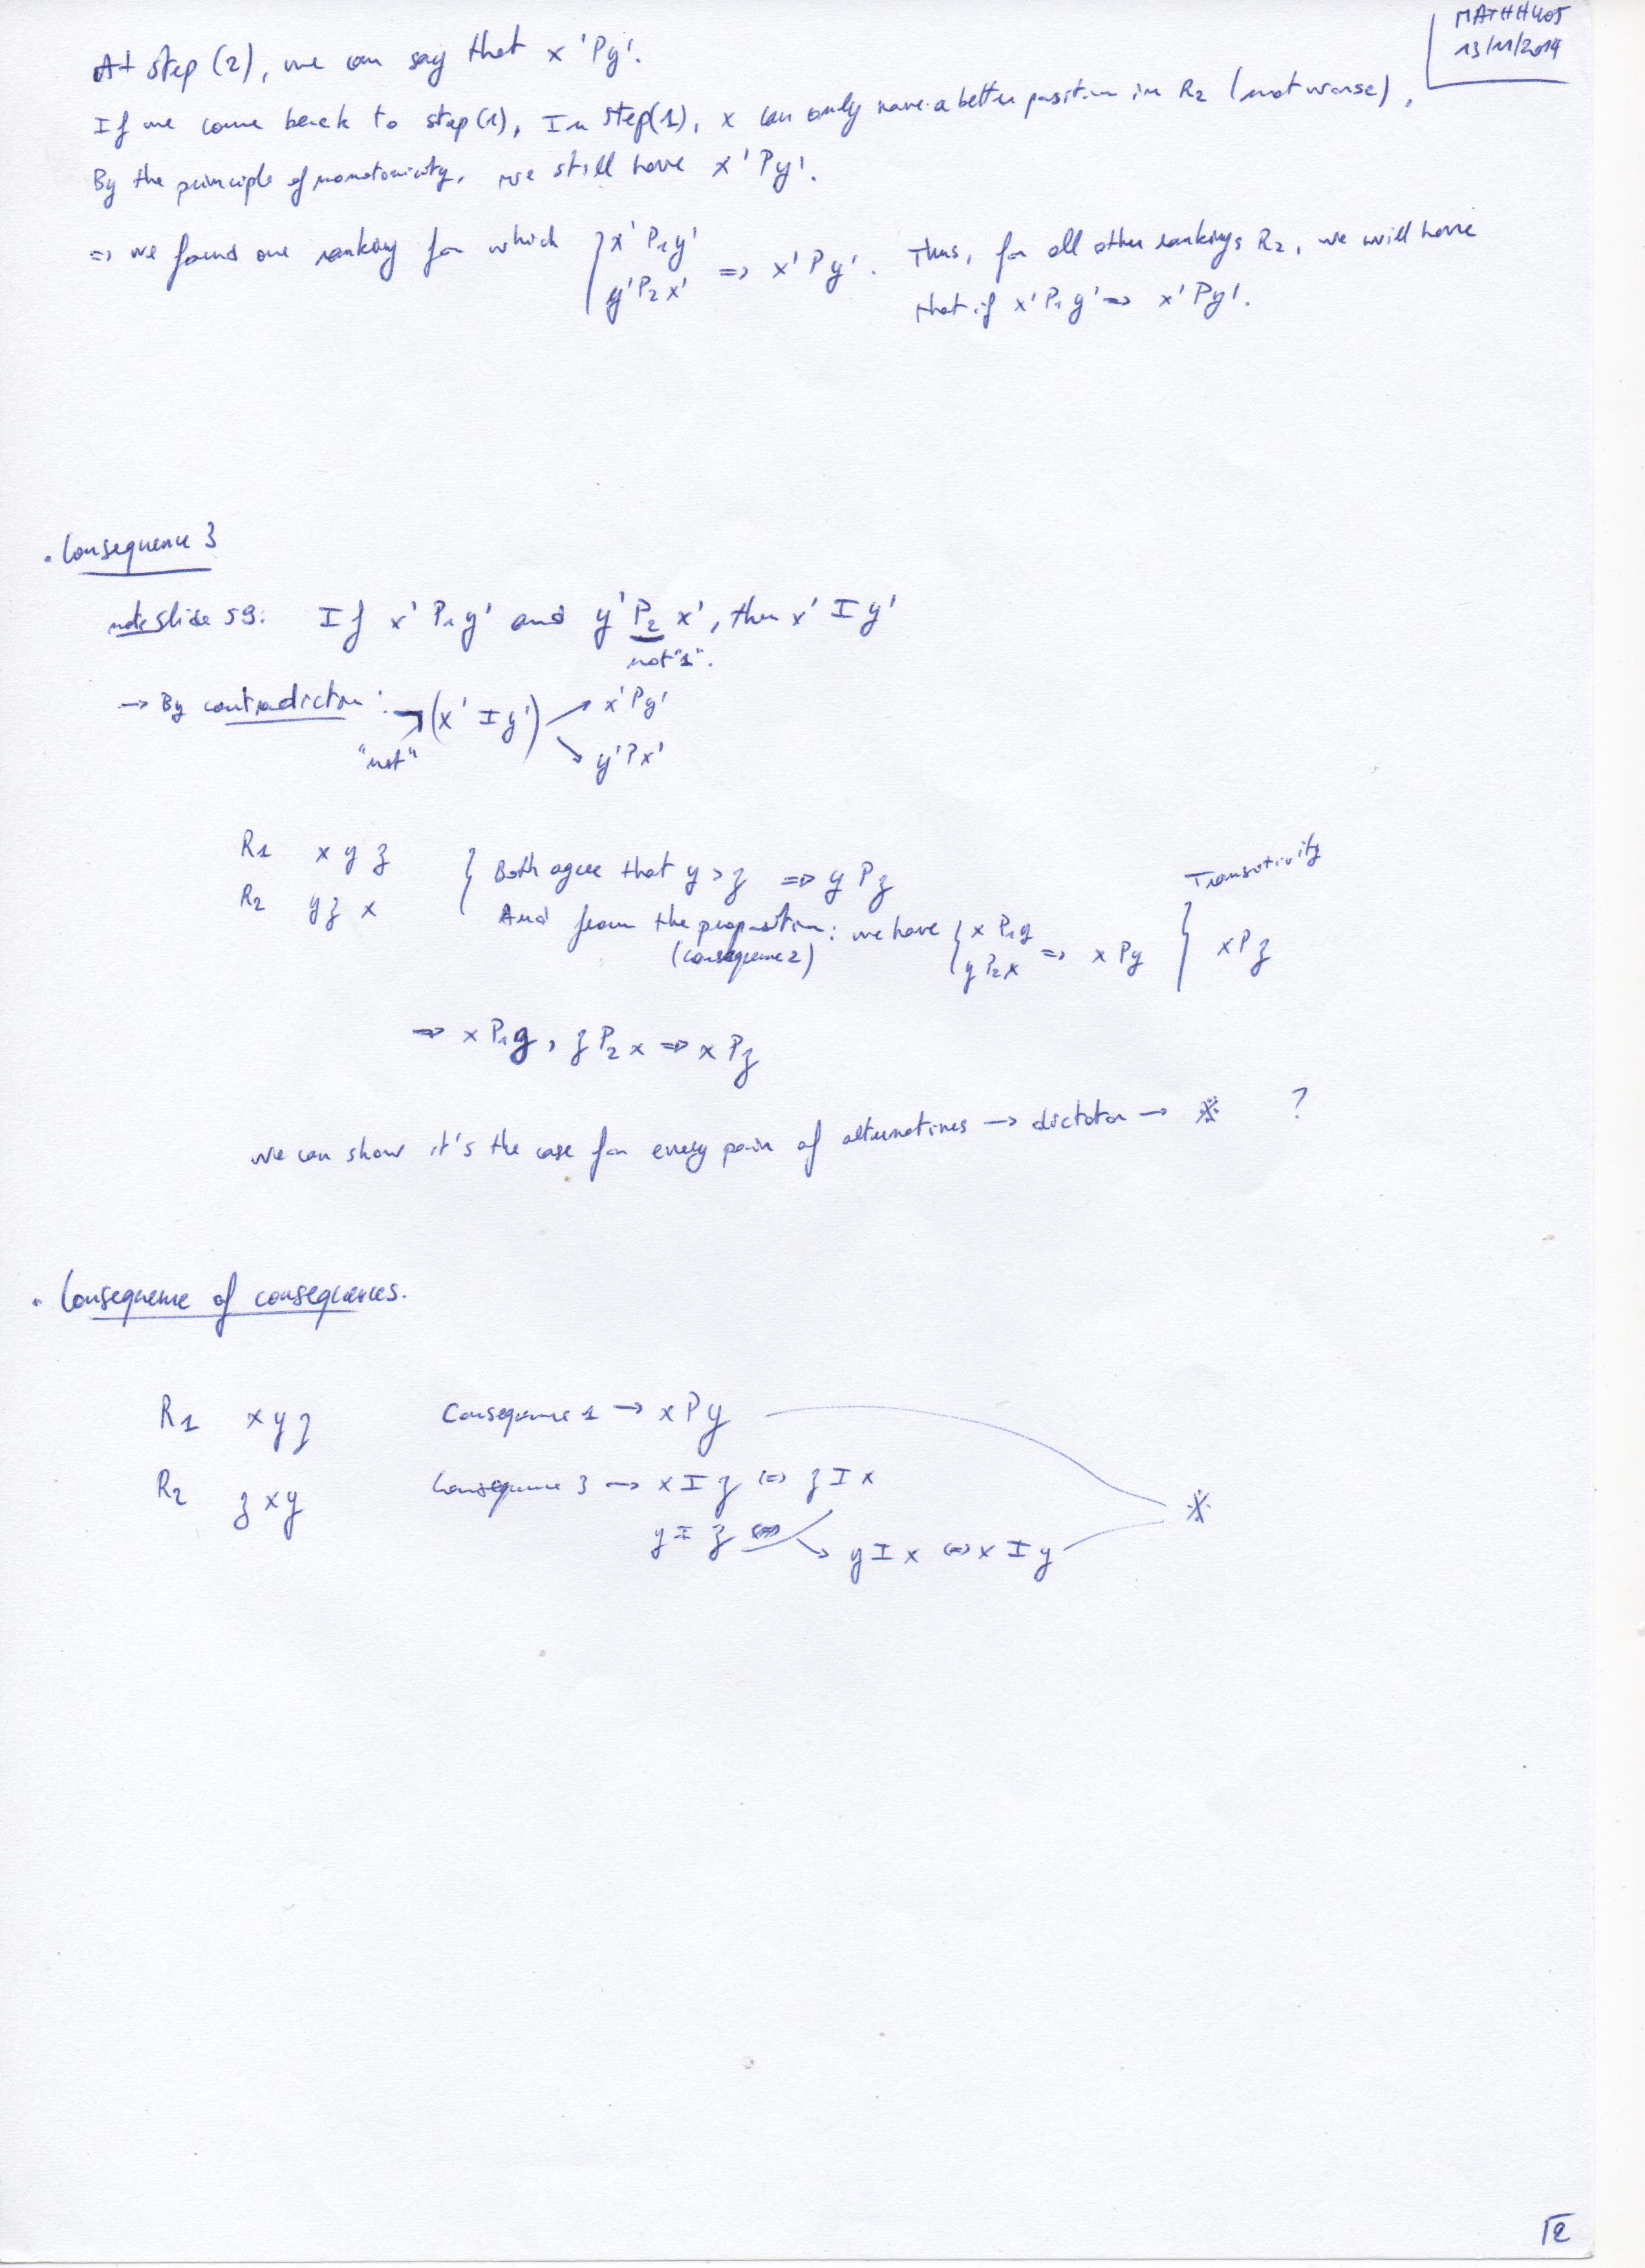 MATHH405
13/11/2014
At step (2), we can say that x'Py'.
If we come back to step(1), In step(1), x can only have a better position in R2 (not worse).
By the principle of monotonicity, we still have x'Py'.
=> we found one ranking for which { x'P1y' y'P2x' => x'Py'. Thus, for all other rankings R2, we will have
that if x'P1y' => x'Py'.
. Consequence 3
note slide 59: If x'P1y' and y'P2x', then x'Iy'
not "1".
→ By contradiction: ¬(x'Iy') → x'Py'
"not" ↘ y'Px'
R1 x y z { Both agree that y > z => yPz } Transitivity
R2 y z x And from the proposition: we have { xP1y yP2x => xPy } xPz
(consequence 2)
=> xP1y, zP2x => xPz
we can show it's the case for every pair of alternatives → dictator → ※ ?
. Consequence of consequences.
R1 x y z Consequence 1 → xPy
R2 z x y Consequence 3 → xIz <=> zIx ※
yIz <=> ↘ yIx <=> xIy
12